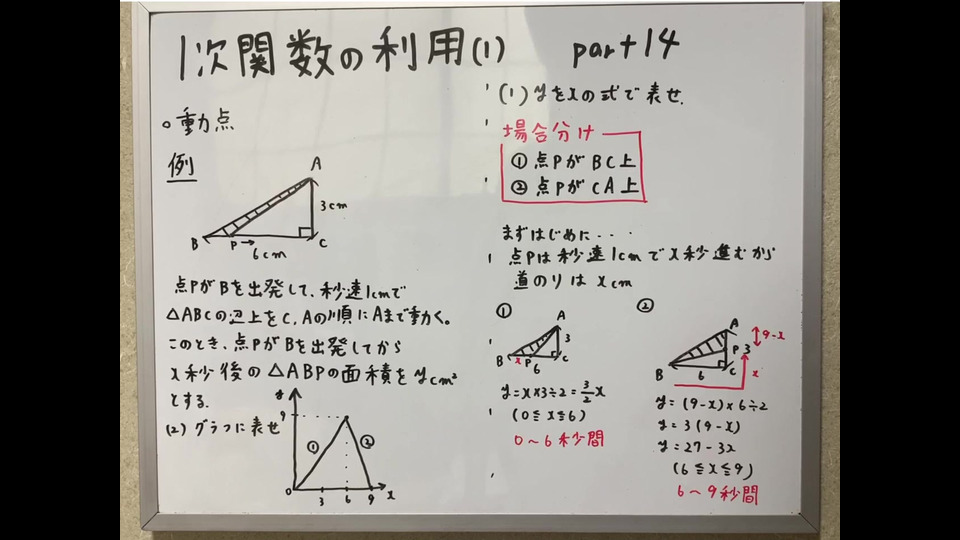 1次関数の利用(1) part14
○動点
例
A
3cm
B P→ C
6cm
点PがBを出発して、秒速1cmで
△ABCの辺上をC,Aの順にAまで動く。
このとき、点PがBを出発してから
x秒後の△ABPの面積をycm²
とする.
(2) グラフに表せ
y
9
① ②
0 3 6 9 x
(1) yをxの式で表せ.
場合分け
① 点PがBC上
② 点PがCA上
まずはじめに・・・
点Pは秒速1cmでx秒進むから
道のりはxcm
①
A
3
B x P C
6
y=x×3÷2=3/2x
(0≦x≦6)
0~6秒間
②
A
9-x
P 3
B 6 C x
y=(9-x)×6÷2
y=3(9-x)
y=27-3x
(6≦x≦9)
6~9秒間